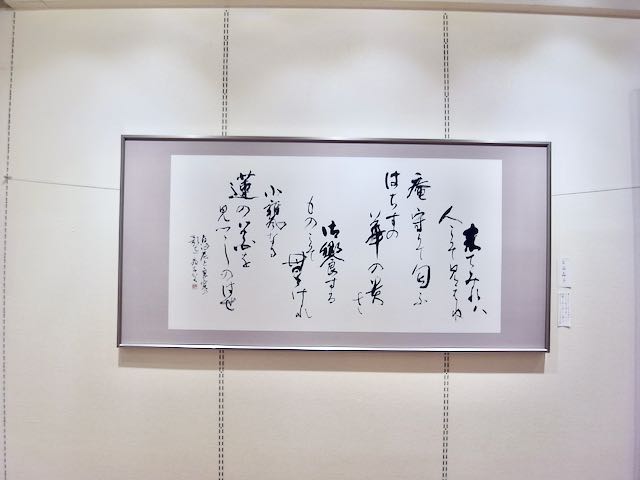 来てみれハ
人こそ見えね
庵守りて匂ふ
はちすの
華の貴
さ
御饗する
ものこそ
けれ
小瓶なる
蓮の花を
見つつしのはせ